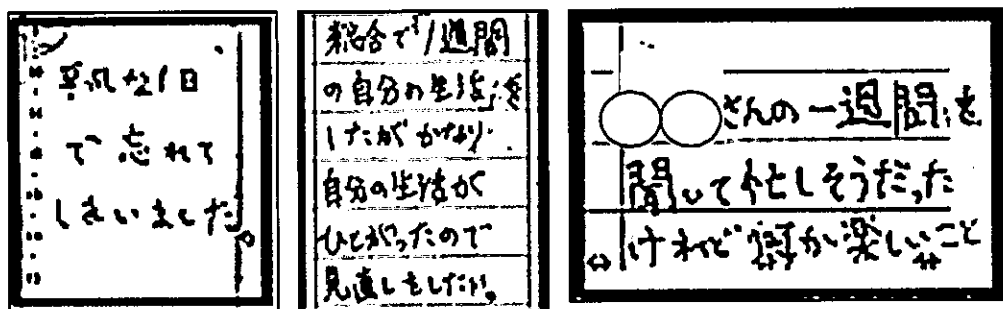 平凡な1日
で忘れて
しまいました。
総合で1週間
の自分の生活を
したが かなり
自分の生活が
ひどかったので
見直しをしたい。
さんの一週間を
聞いて
そうだった
けれど 何か楽しいこと